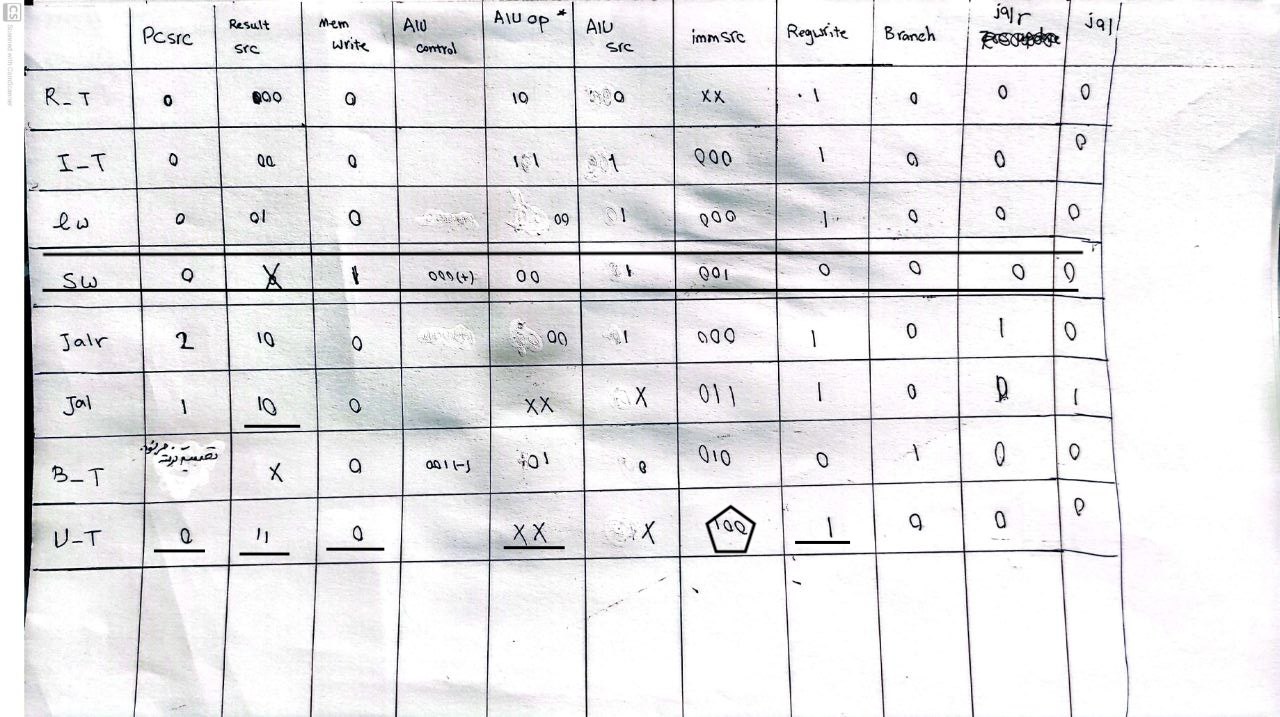 CS Scanned with CamScanner
Pcsrc Result src Mem write AlU control AlU op * AlU src immsrc Regwrite Branch jalr jal
R_T 0 00 0 10 0 XX 1 0 0 0
I_T 0 00 0 11 1 000 1 0 0 0
lw 0 01 0 00 1 000 1 0 0 0
SW 0 X 1 000(+) 00 1 001 0 0 0 0
Jalr 2 10 0 00 1 000 1 0 1 0
Jal 1 10 0 XX X 011 1 0 0 1
B_T X 0 001(-) 01 0 010 0 1 0 0
U_T 0 11 0 XX X 100 1 0 0 0